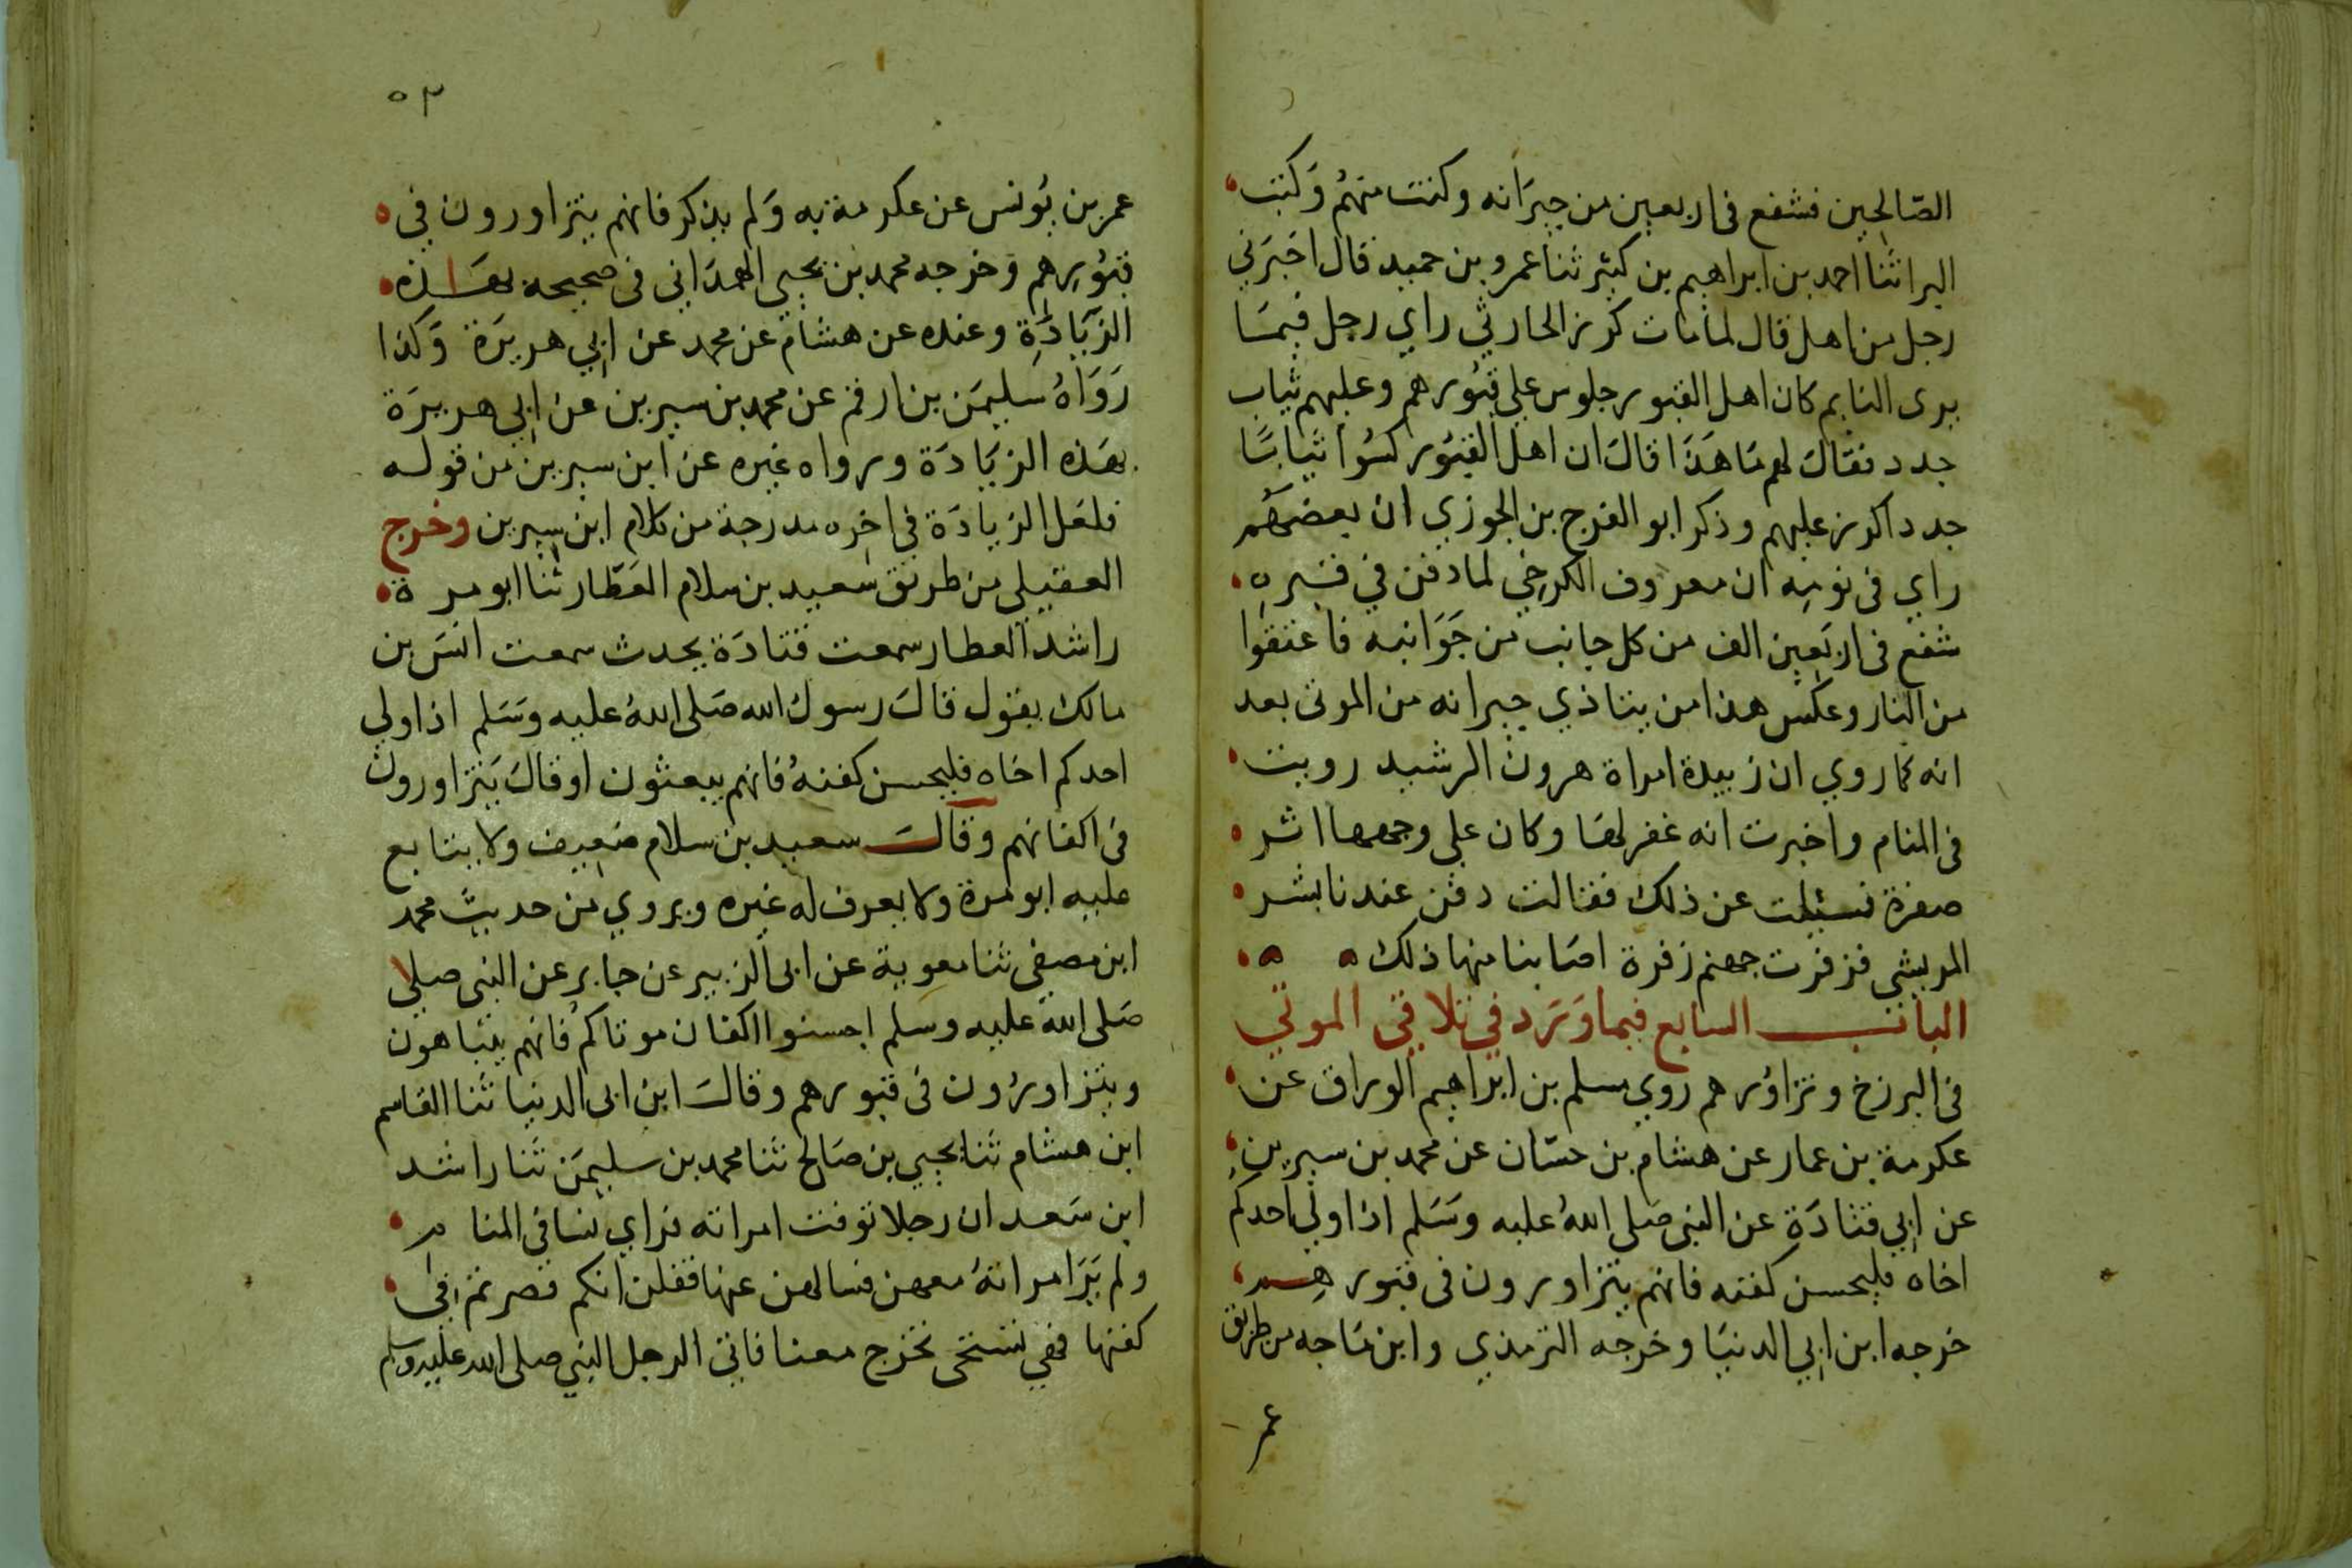 الصّالحين فشفع فى اربعين من جيرَانه وكنت منهُم وَكنت
البرا ثنا احمد بن ابراهيم بن كثير ثنا عمرو بن حميد قال اخبَرني
رجل من اهل قال لما مات كرز الحارثي راي رجل فيمَا
يرى النايم كان اهل القبور جلوس علي قبُورهم وعليهم ثياب
جدد فقالَ لهم مَا هَذَا قالَ ان اهل القبُور كسُوا ثيابًا
جدد اكرز عليهم وذكر ابو الفرج بن الجوزي ان بعضهُم
راي فى نومِه ان معروف الكرخي لما دفن في قبره
شفع فى اربَعين الف من كل جانب من جَوَانبه فاعتقوا
من النار وعكس هذا من يتاذي جيرانه من الموتى بعد
انه كما روي ان زبيدة امراة هرون الرشيد رويت
فى المنام واخبرت انه غفر لها وكان علي وجهها اثر
صفرة فسيلت عن ذلك فقالت دفن عندنا بشر
المريسي فزفرت جهنم زفرة اصَابنا منها ذلك
البابُ السابع فيما وَرَد في تلاقي الموتي
فى البرزخ وتزاوُرهم روي مسلم بن ابراهيم الوراق عن
عكرمة بن عمار عن هشام بن حسّان عن محمد بن سيرين
عن ابي قتادَة عن النبى صَلى اللهُ عليه وسَلم اذا ولي احدكم
اخاه فليحسن كفنه فانهم يتزاورون فى قبورهم
خرجه ابن ابي الدنيَا وخرجه الترمذي وابن مَاجه من طريق
عمر
٥٣
عمر بن يُونس عن عكرمة به وَلم يذكر فانهم يتزاورون في
قبُورِهم وَخرجه محمد بن يحيي الهمدَاني فى صحيحه بهَذه
الزيَادَةِ وعنده عن هشام عن محمد عن ابي هريرَة وَكذا
رَوَاهُ سليمَن بن ارقم عن محمد بن سيرين عن ابي هريرَة
بهَذه الزيَادَة ورواه غيره عن ابن سيرين من قوله
فلعَل الزيادَة في اخره مدرجة من كلام ابن سيرين وخرج
العقيلي من طريق سَعيد بن سلام العَطّار ثنا ابو مرة
راشد العطار سمعت قتادَة يحدث سمعت انسَ بن
مالك يقول قالَ رسول الله صَلى اللهُ عليه وسَلم اذا ولي
احدكم اخاه فليحسن كفنهُ فانهم يبعثون او قالَ يَتزاورون
فى اكفانهم وقالَ سعيد بن سلام ضعيف ولا يتابع
عليه ابو مرة ولا يعرف له غيره ويروي من حديث محمد
ابن مصفى ثنا معوية عن ابى الزبير عن جابر عن النبى صلي
صَلى اللهُ عليه وسلم احسنوا اكفان موتاكُم فانهم يتباهون
ويتزاورُون فى قبورهم وقالَ ابن ابى الدنيا ثنا القاسم
ابن هشام ثنا يحيي بن صَالح ثنا محمد بن سليمَن ثنا راشد
ابن سَعد ان رجلا توفت امراته فراي نسا في المنام
ولم يَرَ امراتهُ معهن فسالهن عنها فقلن انكم قصرتم في
كفنها فهي تستحى تخرج معنا فاتى الرجل النبي صلى الله عليه وسلم